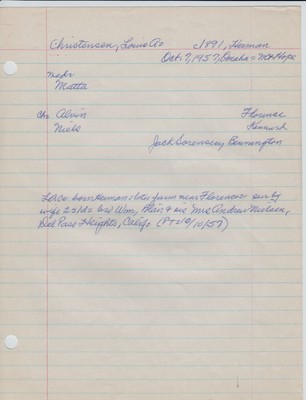 Christensen, Louis A. c1891, Herman
Oct. 7, 1957, Omaha = Mt Hope
Medr
Matta
Chr Alvin Florence
Niels Kennard
Jack Sorensen, Bennington
farm near Florence sur by
wife 2s 1d = bro Wm, Blair & sis Mrs Andrew Nielsen,
Del Paso Heights, Calif. (PT 10/10/57)